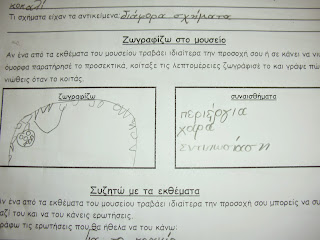 κοκαλ
Τι σχήματα είχαν τα αντικείμενα; διάφορα σχήματα
Ζωγραφίζω στο μουσείο
Αν ένα από τα εκθέματα του μουσείου τραβάει ιδιαίτερα την προσοχή σου ή σε κάνει να νι
όμορφα παρατήρησέ το προσεκτικά, κοίταξε τις λεπτομέρειες ζωγράφισέ το και γράψε πώ
νιώθεις όταν το κοιτάς.
ζωγραφίζω
συναισθήματα
περιέργια
χαρά
εντυποσιαση
Συζητώ με τα εκθέματα
ν ένα από τα εκθέματα του μουσείου τραβάει ιδιαίτερα την προσοχή σου μπορείς να συ
αζί του και να του κάνεις ερωτήσεις.
ράφω τις ερωτήσεις που θα ήθελα να του κάνω: